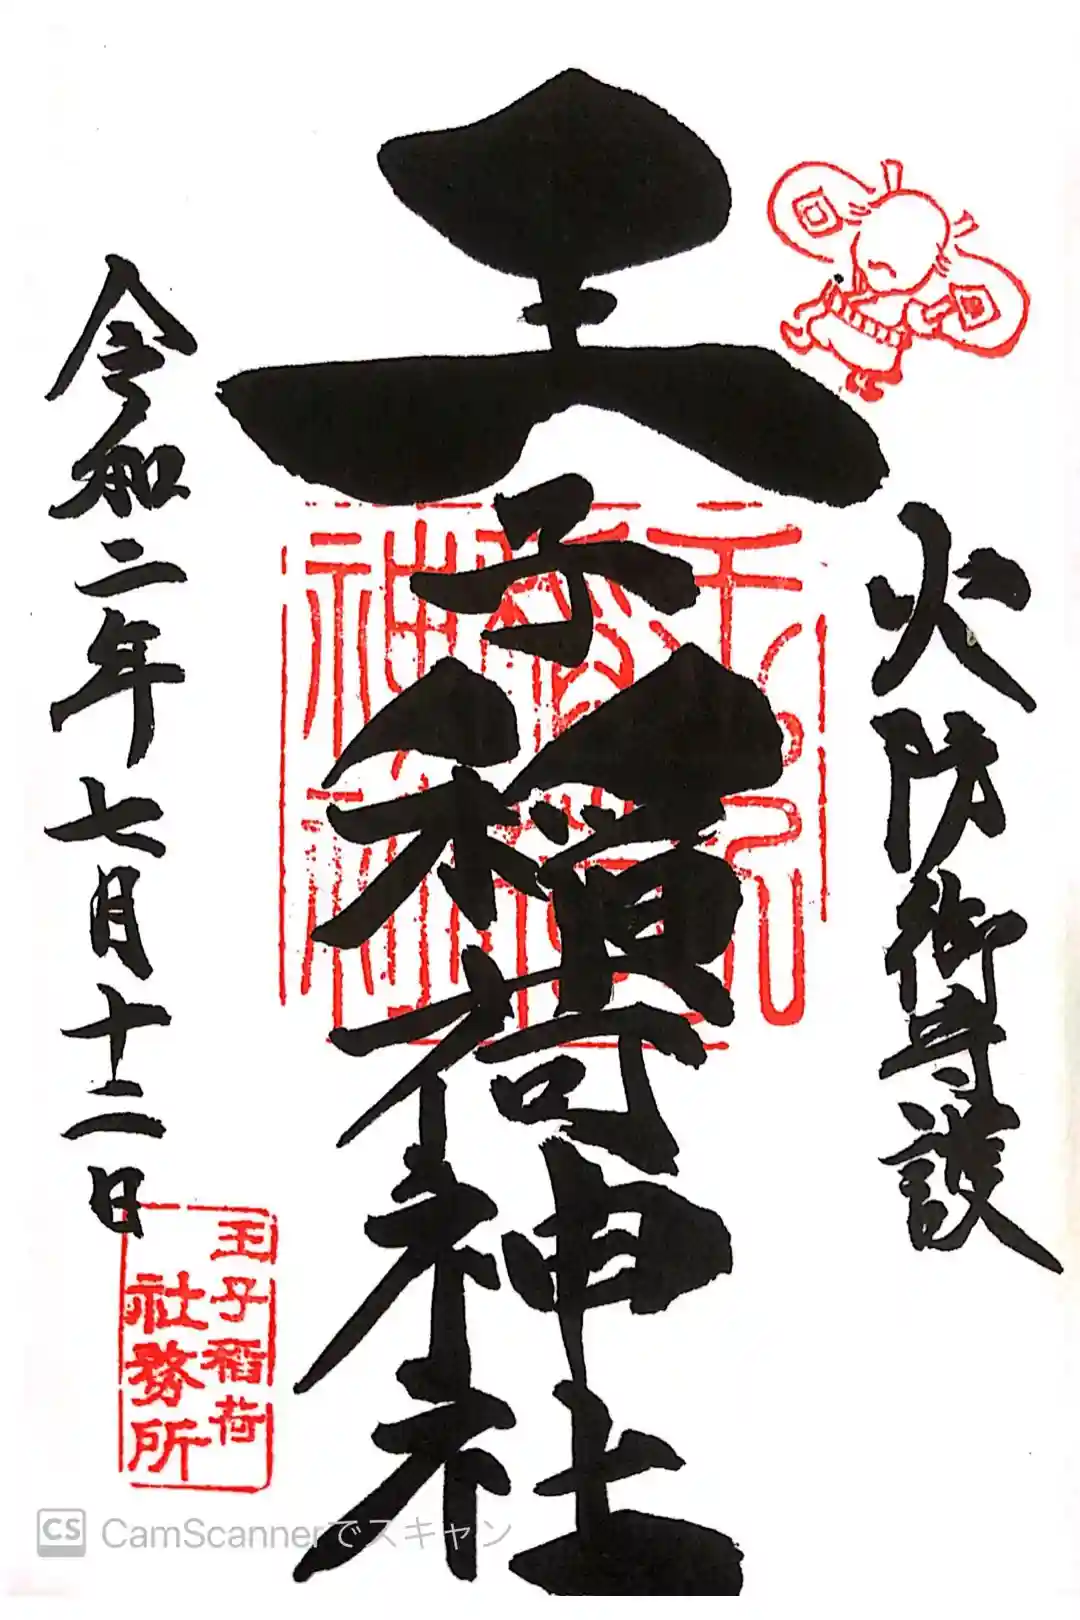 火防御守護
王子稲荷神社
王子稲荷神社
令和二年七月十二日
王子稲荷
社務所
CS CamScannerでスキャン